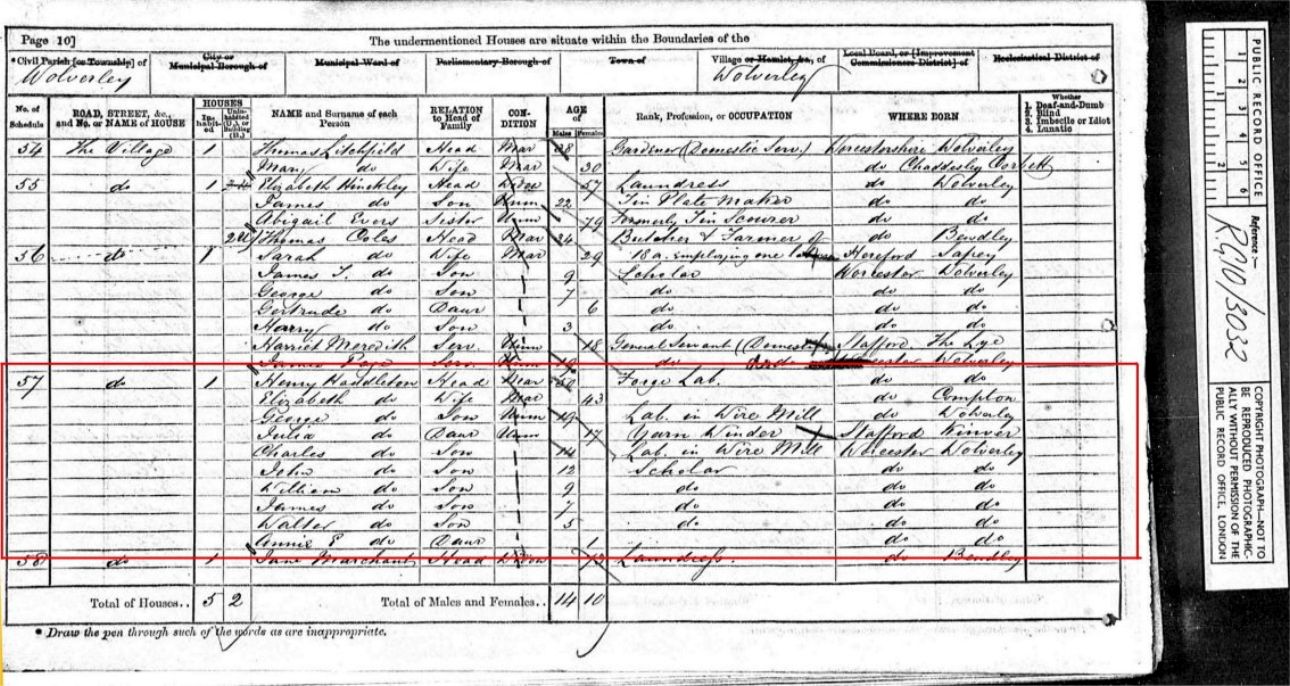 Page 10]
The undermentioned Houses are situate within the Boundaries of the
*Civil Parish [or Township] of
City or
Municipal Borough of
Municipal Ward of
Parliamentary Borough of
Town of
Village or Hamlet, &c., of
Local Board, or [Improvement
Commissioners District] of
Ecclesiastical District of
Wolverley
Wolverley
No. of
Schedule
ROAD, STREET, &c.,
and No. or NAME of HOUSE
HOUSES
In-
habit-
ed
Unin-
habited
(U.), or
Building
(B.)
NAME and Surname of each
Person
RELATION
to Head of
Family
CON-
DITION
AGE
of
Males
Females
Rank, Profession, or OCCUPATION
WHERE BORN
Whether
1. Deaf-and-Dumb
2. Blind
3. Imbecile or Idiot
4. Lunatic
54 The Village 1 Thomas Litchfield Head Mar 28 Gardener (Domestic Serv.) Worcestershire Wolverley
Mary do Wife Mar 30 do Chaddesley Corbett
55 do 1 Elizabeth Hinckley Head 57 Laundress do Wolverley
James do Son Unm 22 Tin Plate Maker do do
Abigail Evers Sister Unm 79 Formerly Tin Scourer do do
2U Thomas Coles Head Mar 34 Butcher & Farmer of do Bewdley
56 do 1 Sarah do Wife Mar 29 18 a. employing one Hereford Sapey
James T. do Son 9 Scholar Worcester Wolverley
George do Son 7 do do do
Gertrude do Daur 6 do do do
Harry do Son 3 do do do
Harriet Meredith Serv. Unm 18 General Servant (Domestic) Stafford The Lye
James Page Serv. Unm 19 do Wolverley
57 do 1 Henry Handleton Head Mar 50 Forge Lab. do do
Elizabeth do Wife Mar 43 do Compton
George do Son Unm 19 Lab. in Wire Mill do Wolverley
Julia do Daur Unm 17 Yarn Winder Stafford Kinver
Charles do Son 14 Lab. in Wire Mill Worcester Wolverley
John do Son 12 Scholar do do
William do Son 9 do do do
James do Son 7 do do do
Walter do Son 5 do do do
Annie E do Daur 1 do do
58 do 1 Jane Marchant Head Widow 73 Laundress. do Bewdley
Total of Houses.. 5 2 Total of Males and Females.. 14 10
* Draw the pen through such of the words as are inappropriate.
PUBLIC RECORD OFFICE
1 2 3 4 5 6
1 2
Reference :-
R.G. 10/3032
COPYRIGHT PHOTOGRAPH—NOT TO
BE REPRODUCED PHOTOGRAPHIC-
ALLY WITHOUT PERMISSION OF THE
PUBLIC RECORD OFFICE, LONDON